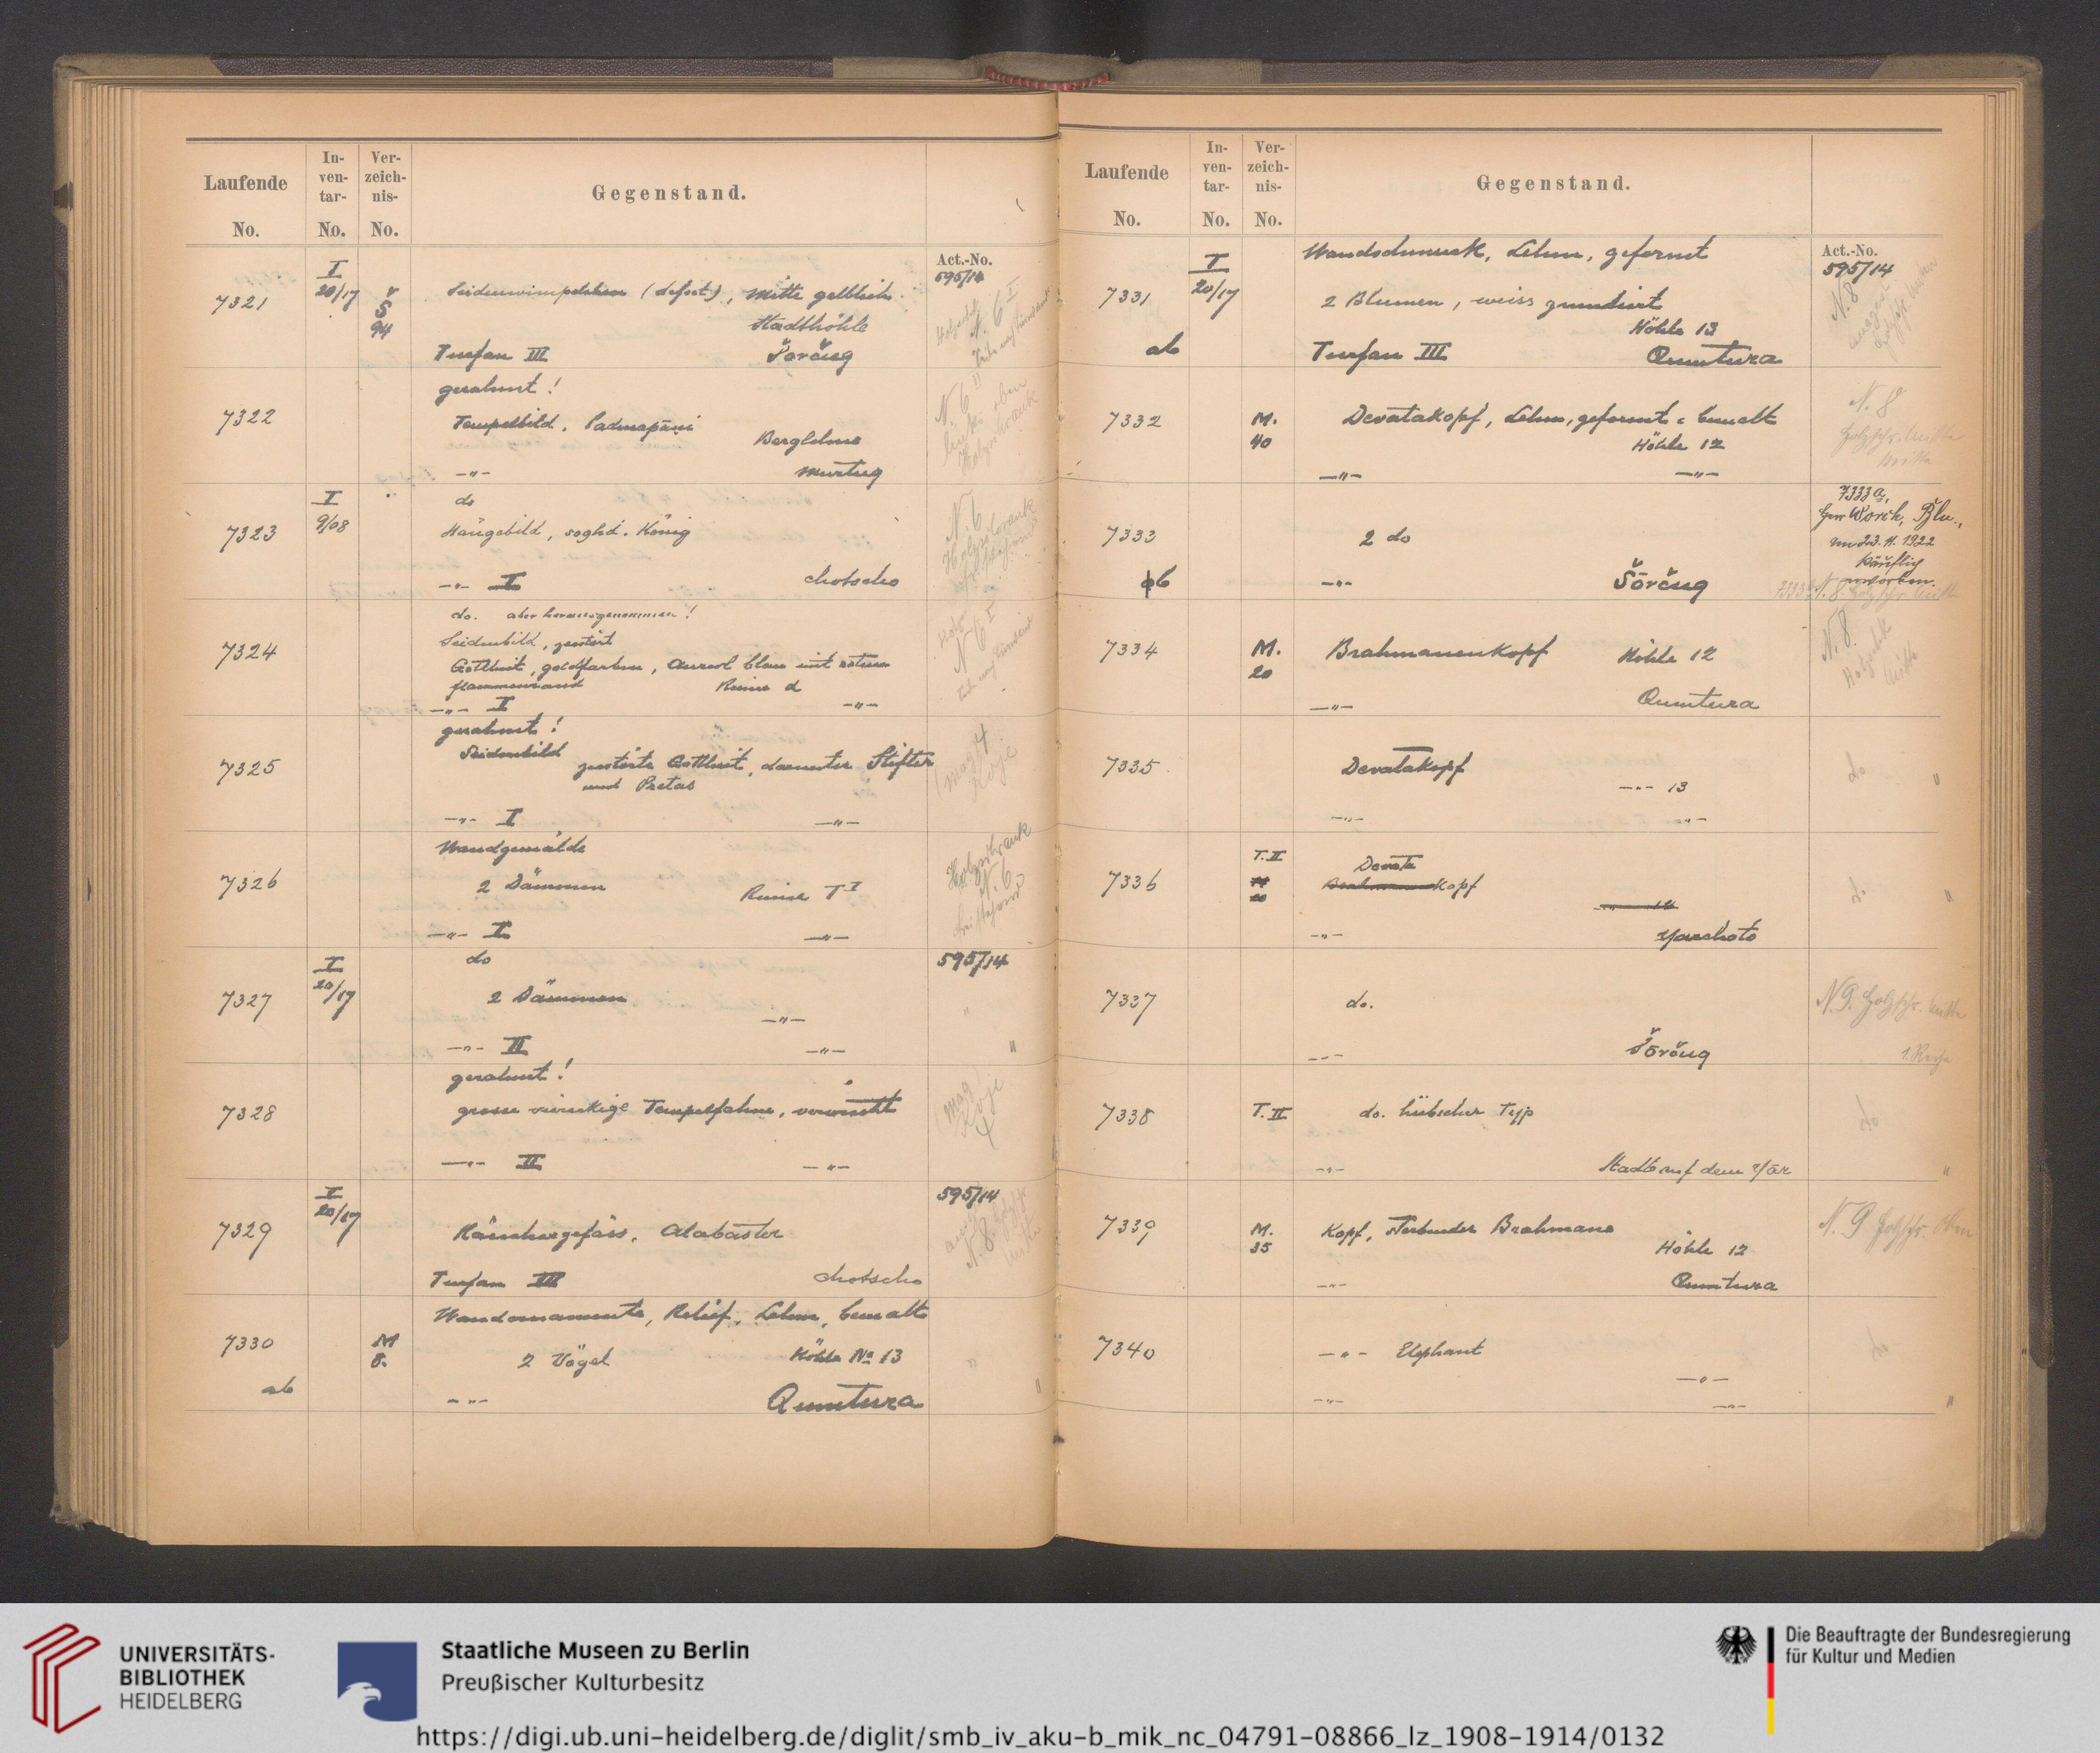 Laufende No.
In-ven-tar-No.
Ver-zeich-nis-No.
Gegenstand.
Act.-No.
7321
I 20/17
Š 94
595/14
Seidenwimpelchen (defect), Mitte gelblich.
Stadthöhle
Turfan III
Šorčug
gerahmt!
7322
Tempelbild. Padmapāṇi
Berglehne
—"—
Murtuq
N. 6
Holzschrank
do
7323
I 9/08
Hängebild, soghd. König
—"— I
Chotscho
N. 6
Holzschrank
do. aber herausgenommen!
7324
Seidenbild, zerstört
Gottheit, goldfarben, Aureol blau mit rotem
Flammenrand
Ruine α
—"— I
—"—
N 6 I
gerahmt!
7325
Seidenbild
zerstörte Gottheit, darunter Stifter
und Pretas
—"— I
—"—
Mag 4
Koje
Wandgemälde
7326
2 Dämonen
Ruine T I
—"— I
—"—
Holzschrank
N. 6
do
7327
I 20/17
595/14
2 Dämonen
—"—
—"— II
—"—
gerahmt!
7328
grosse viereckige Tempelfahne, verwischt
—"— II
—"—
Mag
Koje
4
7329
I 20/17
595/14
Räuchergefäss, Alabaster
Turfan III
Chotscho
N. 8
Wandornamente, Relief, Lehm, bemalt
7330
M 8.
2 Vögel
Höhle No 13
ab
—"—
Qumtura
Laufende No.
In-ven-tar-No.
Ver-zeich-nis-No.
Gegenstand.
Act.-No.
Wandschmuck, Lehm, geformt
7331
I 20/17
595/14
2 Blumen, weiss grundiert
Höhle 13
ab
Turfan III
Qumtura
N. 8
7332
M. 40
Devatakopf, Lehm, geformt & bemalt
Höhle 12
—"—
—"—
N. 8
7333
2 do
ab
—"—
Šorčug
7333 a,
Herr Worch, Bln.,
am 23.11.1922
käuflich
erworben.
7334
M. 20
Brahmanenkopf
Höhle 12
—"—
Qumtura
N. 8
7335
Devatakopf
—"— 13
—"—
—"—
do "
7336
T. II
Devata
kopf
—"—
Yarchoto
do "
7337
do.
—"—
Šorčug
N 9. Holzschr. Mitte
1. Reihe
7338
T. II
do. hübscher Typ
—"—
Stadt auf dem Yār
do "
7339
M. 35
Kopf, sterbender Brahmane
Höhle 12
—"—
Qumtura
N. 9 Holzschr. Oben
7340
—"— Elephant
—"—
—"—
—"—
do "
UNIVERSITÄTS-
BIBLIOTHEK
HEIDELBERG
Staatliche Museen zu Berlin
Preußischer Kulturbesitz
Die Beauftragte der Bundesregierung
für Kultur und Medien
https://digi.ub.uni-heidelberg.de/diglit/smb_iv_aku-b_mik_nc_04791-08866_lz_1908-1914/0132